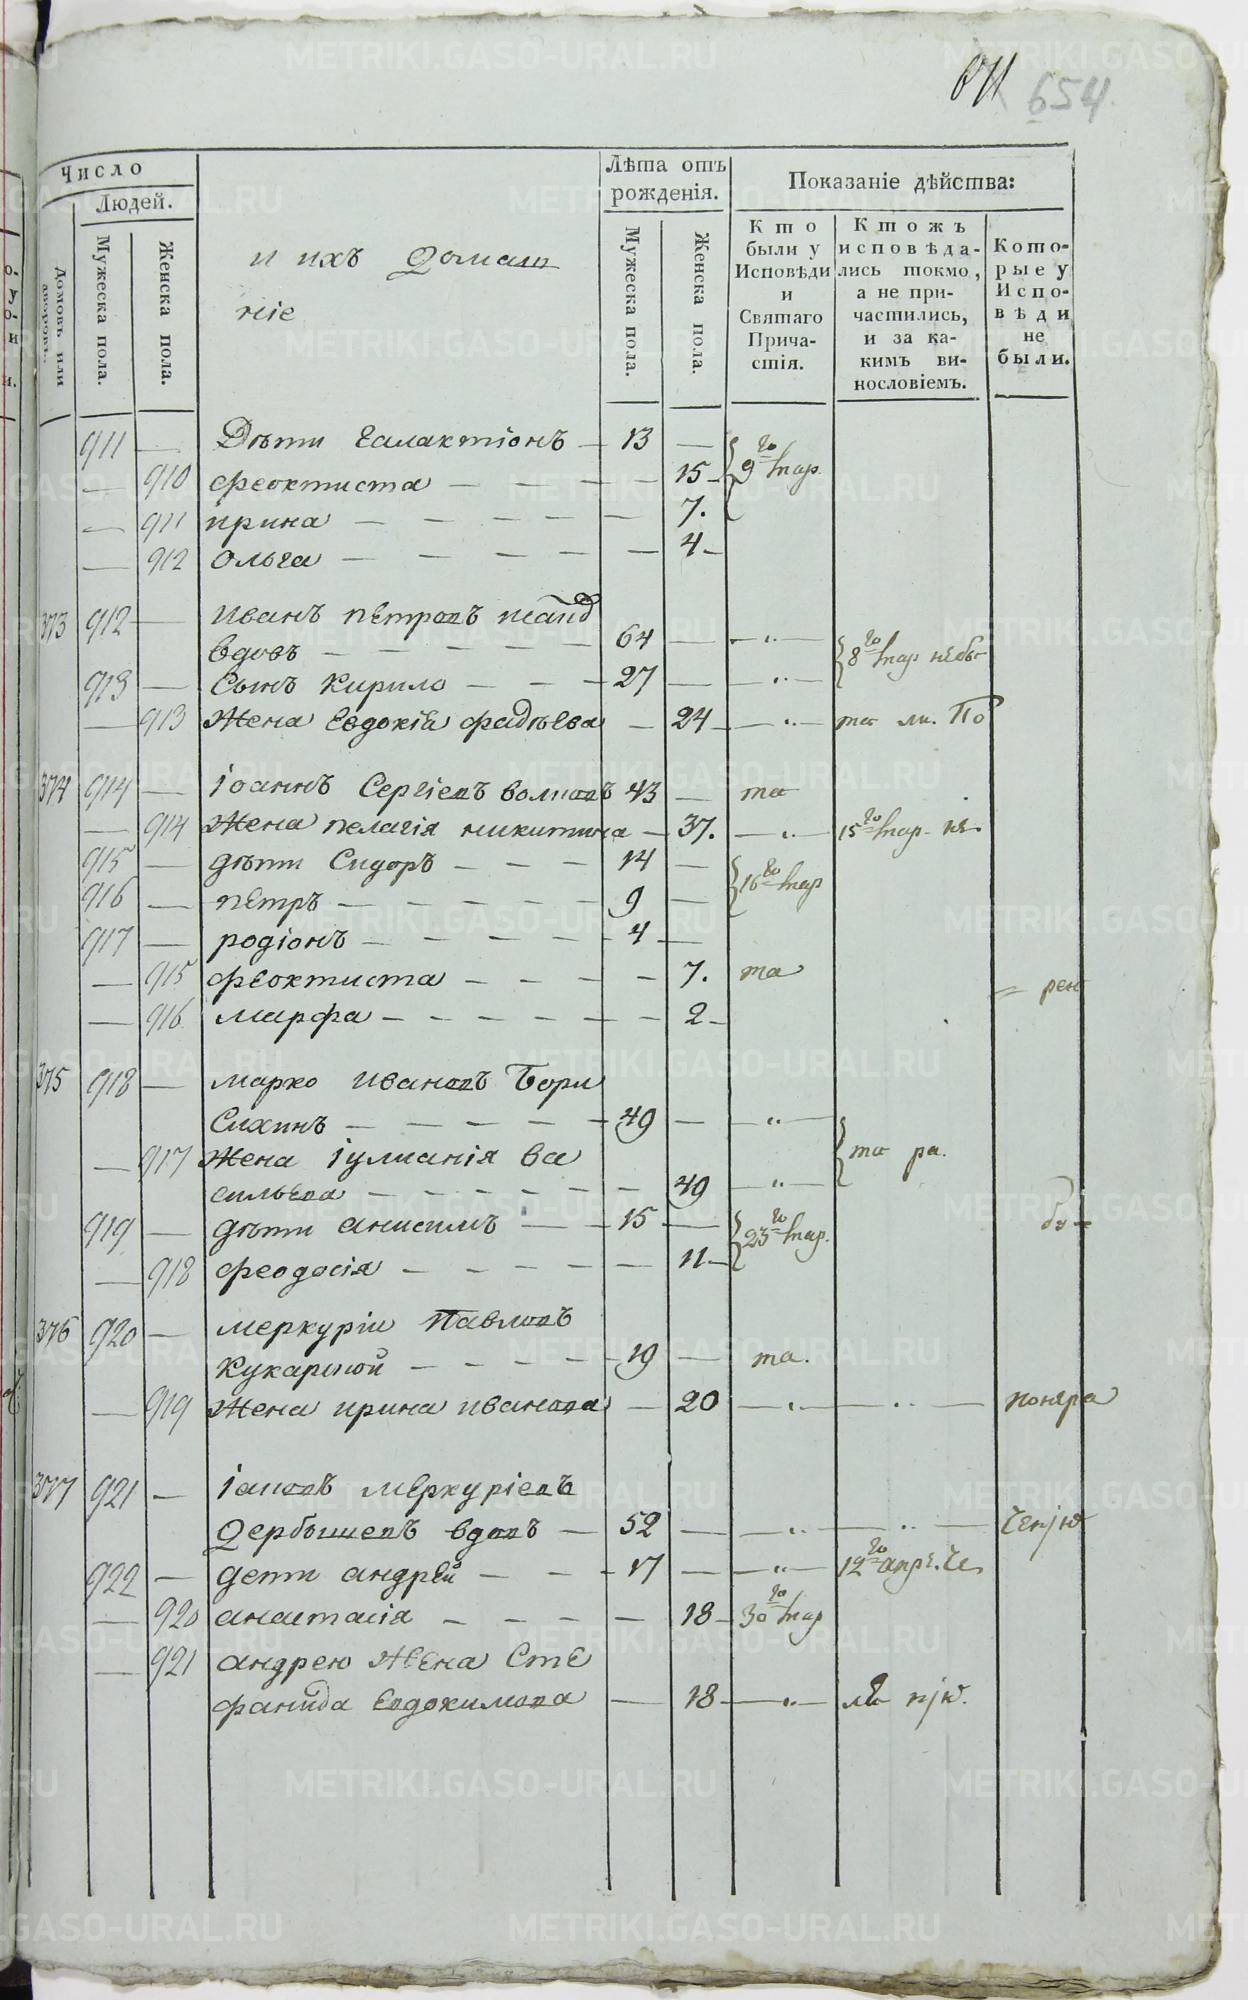 654
Число
Людей.
Домовъ или дворовъ.
Мужеска пола.
Женска пола.
и ихъ домаш
ніе
Лѣта отъ рожденія.
Мужеска пола.
Женска пола.
Показаніе дѣйства:
Кто были у Исповѣди и Святаго Причастія.
Ктожъ исповѣдались токмо, а не причастились, и за какимъ винословіемъ.
Которые у Исповѣди не были.
911 — Дѣти Галактіонъ — 13 —
— 910 феоктиста — 15
— 911 ирина — 7.
— 912 ольга — 4
373 912 — иванъ петровъ
вдовъ — 64 —
913 — Сынъ Кирило — 27 —
— 913 Жена Евдокія фадѣева — 24
374 914 — іоаннъ Сергіевъ волковъ 43 — та
— 914 Жена пелагія никитина — 37.
915 — дѣти Сидоръ — 14 —
916 — петръ — 9 —
917 — родіонъ — 4 —
— 915 феоктиста — 7. та
— 916 марфа — 2
375 918 — марко ивановъ Борм
Сихинъ — 49 —
— 917 Жена іулианія ва
сильева — 49 — та ра.
919 — дѣти анисимъ — 15 —
— 918 феодосія — 11
376 920 — меркуріи Павловъ
Кукарской — 19 — та.
— 919 Жена ирина иванова — 20
377 921 — іаковъ меркуріевъ
Дербышевъ вдовъ — 52 —
922 — дети андрей — 17 —
— 920 анастасія — 18
— 921 андрею Жена Сте
фанида Евдокимова — 18